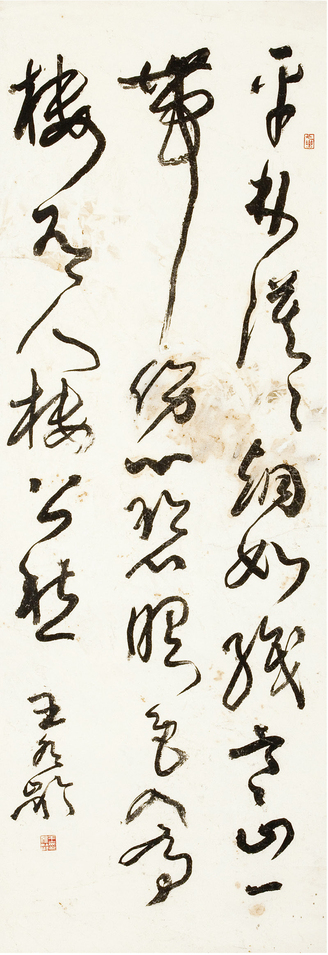 平林漠漠烟如織寒山一
帶傷心碧暝色入高
樓有人樓上愁
王 齡